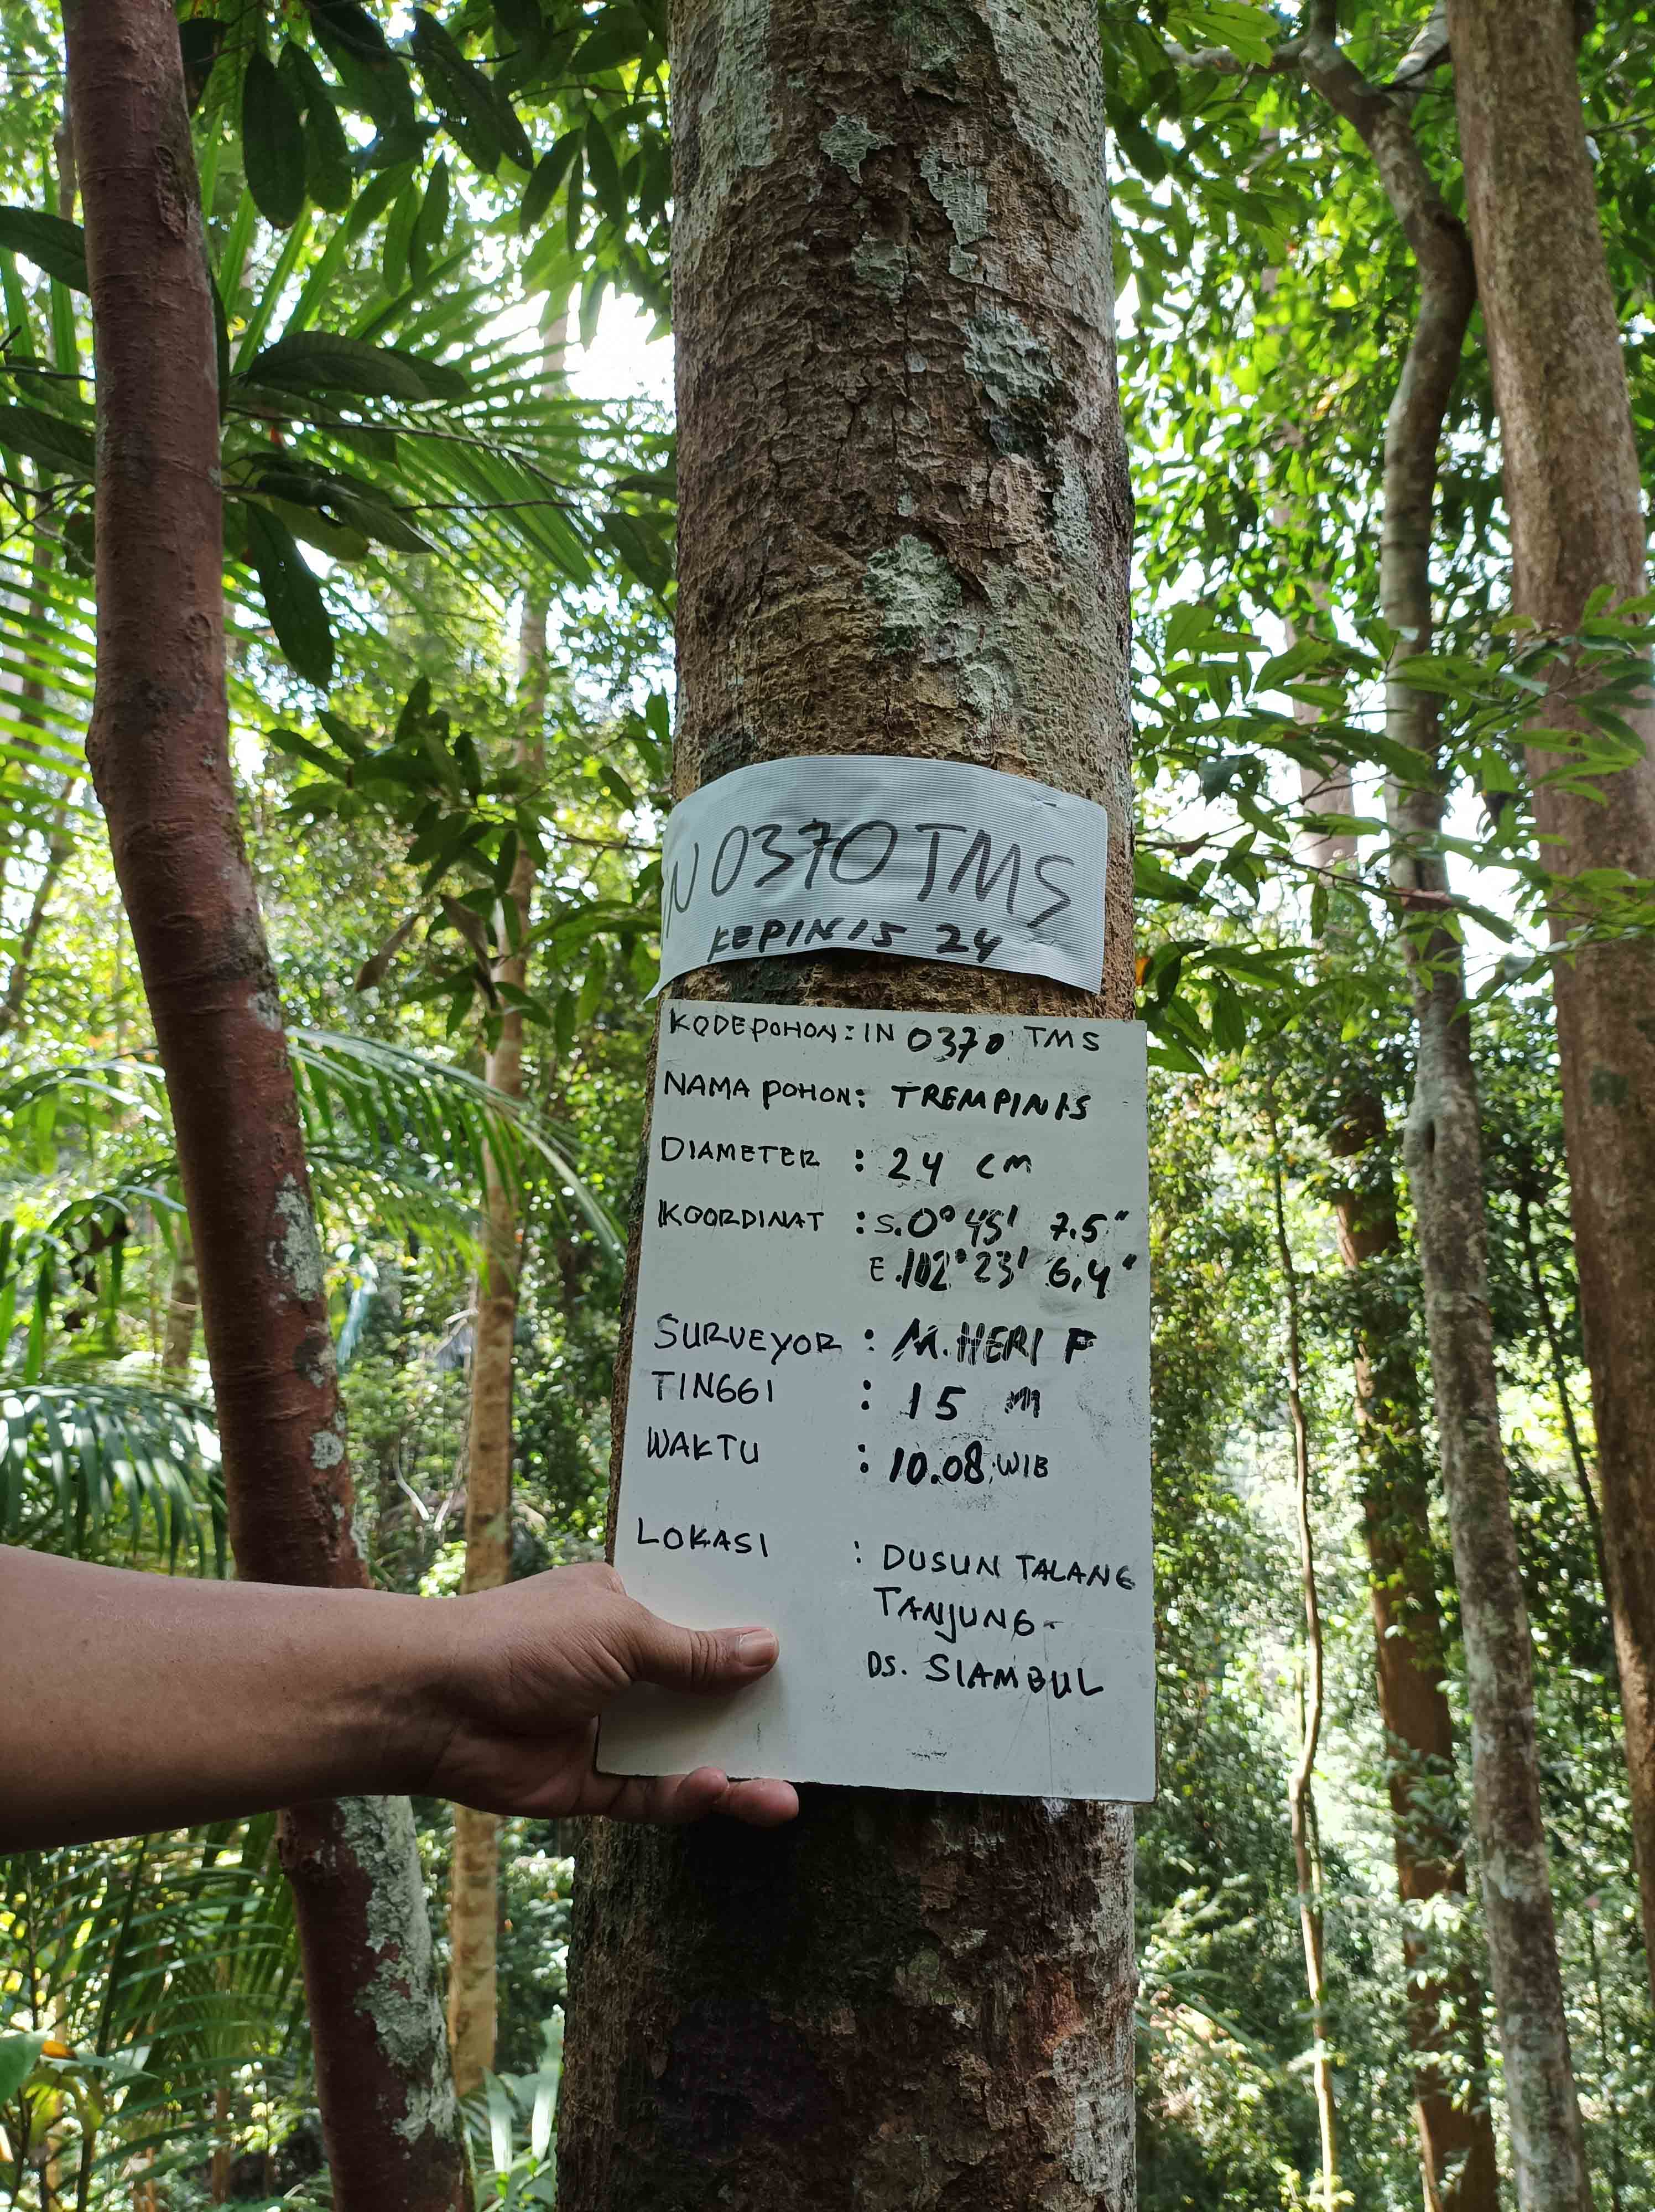 IN 0370 TMS
KEPINIS 24
KODE POHON : IN 0370 TMS
NAMA POHON : TREMPINIS
DIAMETER : 24 CM
KOORDINAT : S. 0° 45' 7.5"
E. 102° 23' 6,4"
SURVEYOR : M. HERI F
TINGGI : 15 M
WAKTU : 10.08 WIB
LOKASI : DUSUN TALANG
TANJUNG -
DS. SIAMBUL